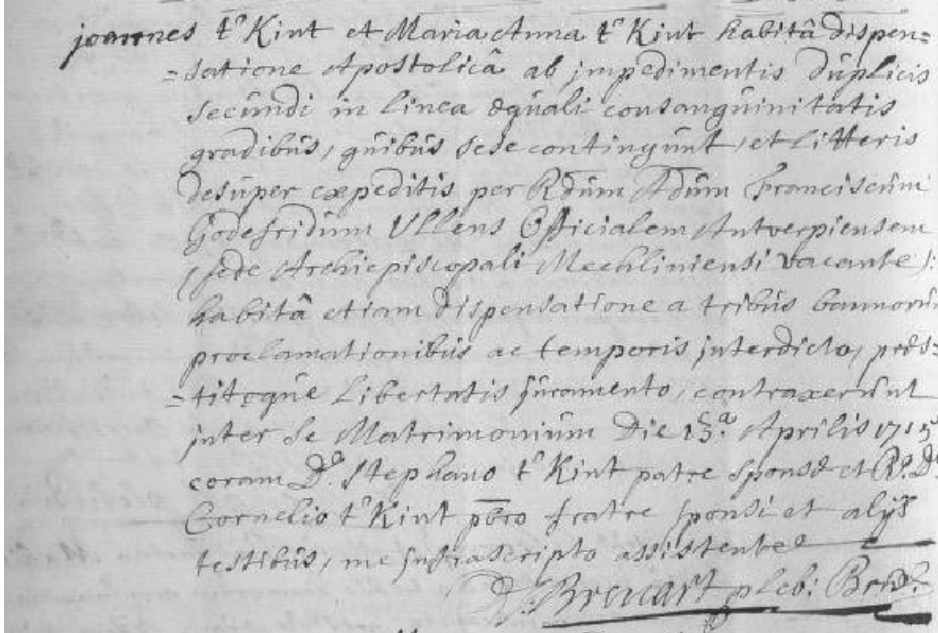 joannes t' Kint et Maria Anna t' Kint habitâ dispen=
=satione Apostolicâ ab impedimentis duplicis
secundi in linea æquali consanguinitatis
gradibus, quibus sese contingunt, et Litteris
desuper expeditis per Rdum Adum Franciscum
Godefridum Ullens Officialem Antverpiensem
(sede Archiepiscopali Mechliniensi vacante):
habitâ etiam dispensatione a tribus bannorum
proclamationibus ac temporis interdicto, præs=
=titoque Libertatis juramento, contraxerunt
inter se Matrimonium Die 13ª Aprilis 1715
coram Dº Stephano t' Kint patre sponsæ et Rº Dº
Cornelio t' Kint pbro fratre sponsi et alijs
testibus, me infrascripto assistente
Breuart pleb: